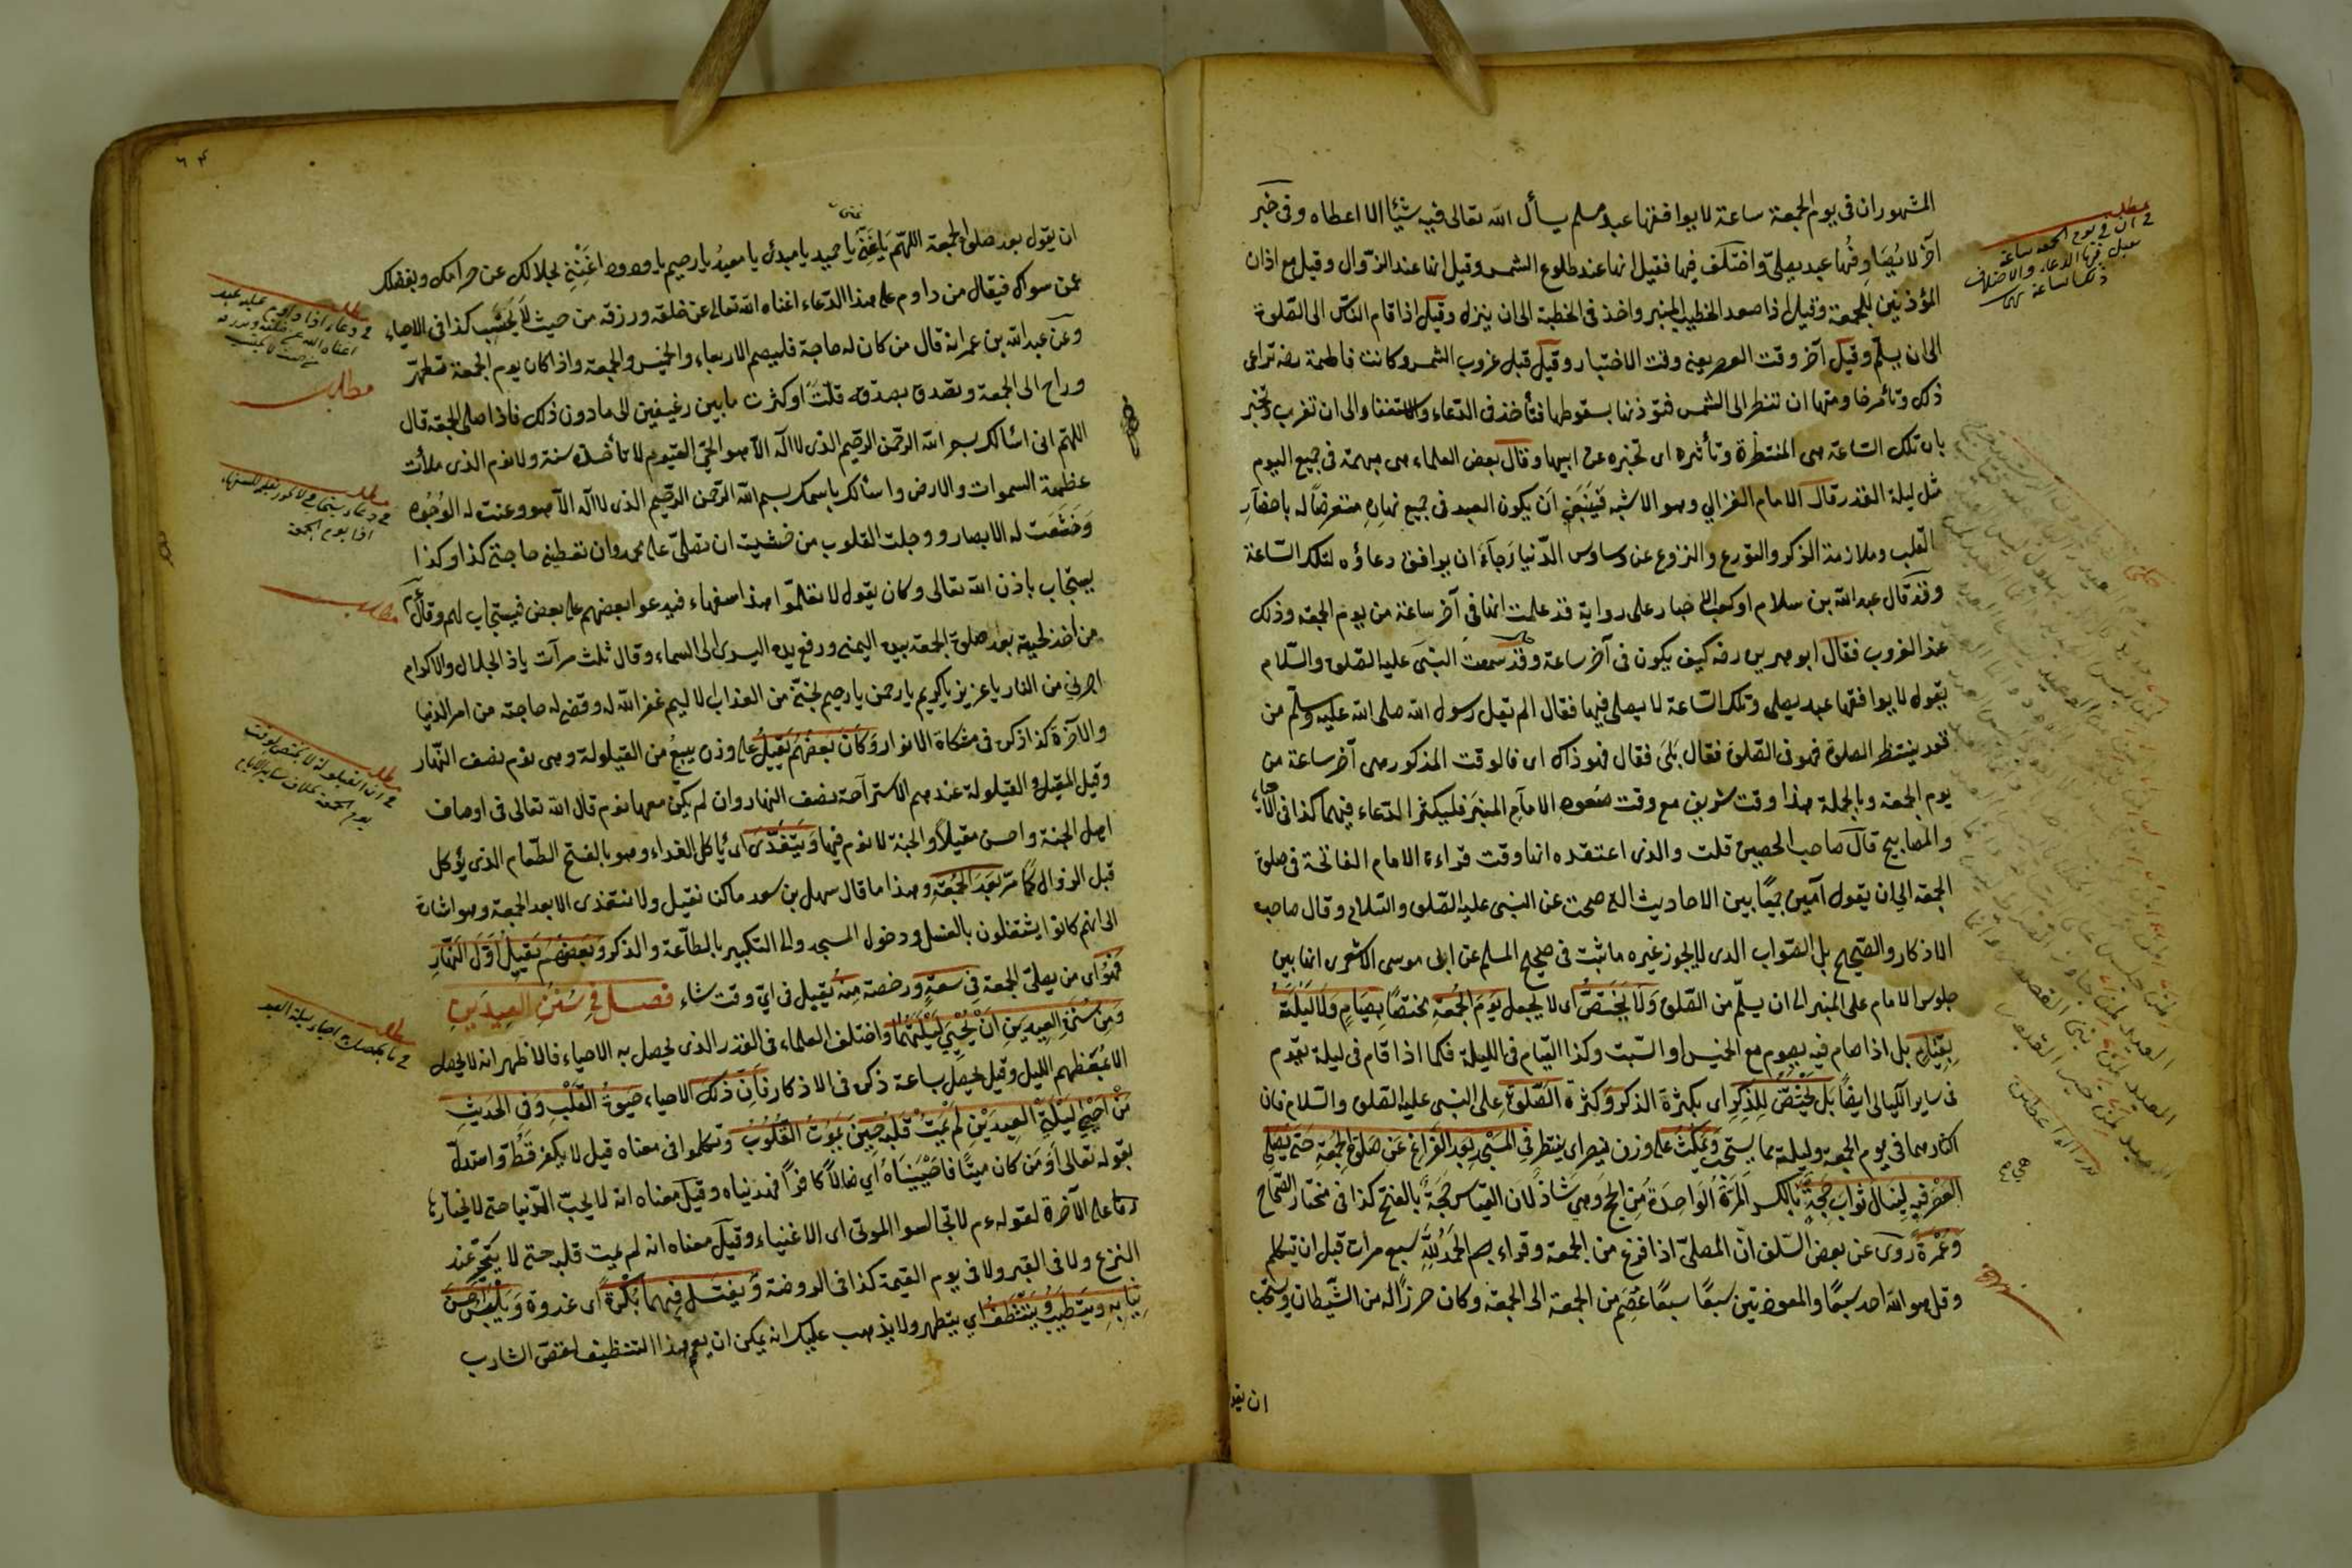 المشهور ان فى يوم الجمعة ساعة لا يوافقها عبد مسلم يسأل الله تعالى فيه شيئا الا اعطاه وفى خبر
آخر لا يُصَادِفُها عبد يصلى واختلف فيها فقيل انها عند طلوع الشمس وقيل انها عند الزوال وقيل مع اذان
المؤذنين للجمعة وقيل اذا صعد الخطيب المنبر واخذ فى الخطبة الى ان ينزل وقيل اذا قام الناس الى الصلوة
الى ان يسلّم وقيل آخر وقت العصر يعنى وقت الاختيار وقيل قبل غروب الشمس وكانت فاطمة رضه تراعى
ذلك وتأمر خادمتها ان تنظر الى الشمس فتؤذنها بسقوطها فتأخذ فى الدعاء والاستغفار الى ان تغرب وتخبر
بان تلك الساعة هى المنتظرة وتأثره اى تخبره عن ابيها وقال بعض العلماء هى مبهمة فى جميع اليوم
مثل ليلة القدر قال الامام الغزالي وهو الاشبه فينبغى ان يكون العبد فى جميع نهاره متعرضاً له باحضار
القلب وملازمة الذكر والتورع والنزوع عن وساوس الدنيا رجاءَ ان يوافق دعاؤه لتلك الساعة
وقد قال عبد الله بن سلام او كعب الاخبار على رواية قد علمت انها فى آخر ساعة من يوم الجمعة وذلك
عند الغروب فقال ابو هريرة رضه كيف يكون فى آخر ساعة وقد سمعت النبى عليه الصلوة والسلام
يقول لا يوافقها عبد يصلى وتلك الساعة لا يصلى فيها فقال الم يقل رسول الله صلى الله عليه وسلم من
قعد ينتظر الصلوة فهو فى الصلوة فقال بلى فقال فهو ذاك اى فالوقت المذكور هى آخر ساعة من
يوم الجمعة وبالجملة هذا وقت شريف مع وقت صعود الامام المنبر فليكثر الدعاء فيهما كذا فى الاحياء
والمصابيح قال صاحب الحصين قلت والذى اعتقده انها وقت قراءة الامام الفاتحة فى صلوة
الجمعة الى ان يقول آمين جمعًا بين الاحاديث التى صحت عن النبى عليه الصلوة والسلام وقال صاحب
الاذكار والصحيح بل الصواب الذى لا يجوز غيره ما ثبت فى صحيح المسلم عن ابى موسى الاشعرى انها بين
جلوس الامام على المنبر الى ان يسلّم من الصلوة ولا يختصّ اى لا يجعل يوم الجمعة مختصًا بصيام ولا ليلته
بقيام بل اذا صام فيه يصوم مع الخميس او السبت وكذا القيام فى الليلة فكما اذا قام فى ليلة يقوم
فى ساير الليالى ايضًا بل يختصّ للذكر اى بكثرة الذكر وكثرة الصلوة على النبى عليه الصلوة والسلام فان
اكثارهما فى يوم الجمعة وليلته مما يستحب ويمكث على وزن ينصر اى ينتظر فى المسجد بعد الفراغ عن صلوة الجمعة حتى يصلى
العصر فيه لينال ثواب حجة بالكسر المرة الواحدة من الحج وهى شاذ لان القياس حجة بالفتح كذا فى مختار الصحاح
وعمرة روى عن بعض السلف ان المصلى اذا فرغ من الجمعة وقراء بسم الحمد لله سبع مرات قبل ان يتكلم
وقل هو الله احد سبعًا والمعوذتين سبعًا سبعًا عُصِم من الجمعة الى الجمعة وكان حرزًا له من الشيطان ويستحب
ان يقو
مطلب
فى ان فى يوم الجمعة ساعة
يقبل فيها الدعاء والاختلاف
٦٤
ان يقول بعد صلوة الجمعة اللهم يا غنى يا حميد يا مبدئ يا معيد يا رحيم يا ودود اغننى بحلالك عن حرامك وبفضلك
عمن سواك فيقال من داوم على هذا الدعاء اغناه الله تعالى عن خلقه ورزقه من حيث لا يحتسب كذا فى الاحياء
وعن عبد الله بن عمر انه قال من كان له حاجة فليصم الاربعاء والخميس والجمعة واذا كان يوم الجمعة تطهر
وراح الى الجمعة وتصدق بصدقة قلّت او كثرت ما بين رغيفين الى ما دون ذلك فاذا صلى الجمعة قال
اللهم انى اسألك بسم الله الرحمن الرحيم الذى لا اله الا هو الحى القيوم لا تأخذه سنة ولا نوم الذى ملأت
عظمة السموات والارض واسألك باسمك بسم الله الرحمن الرحيم الذى لا اله الا هو وعنت له الوجوه
وخشعت له الابصار ووجلت القلوب من خشيته ان تصلى على محمد وان تعطينى حاجتى كذا وكذا
يستجاب باذن الله تعالى وكان يقول لا تعلموا هذا سفهاء فيدعوا بعضهم على بعض فيستجاب لهم وقال
من اخذ لحيته بعد صلوة الجمعة بيده اليمنى ورفع يده اليسرى الى السماء وقال ثلث مرات يا ذا الجلال والاكرام
اجرنى من النار يا عزيز يا كريم يا رحمن يا رحيم نجنى من العذاب الاليم غفر الله له وقضى له حاجته من امر الدنيا
والآخرة كذا ذكر فى مشكاة الانوار وكان بعضهم يقيل على وزن يبيع من القيلولة وهى نوم نصف النهار
وقيل المقيل والقيلولة عندهم الاستراحة نصف النهار وان لم يكن معها نوم قال الله تعالى فى اوصاف
اهل الجنة واحسن مقيلًا والجنة لا نوم فيها ويتغدّى اى يأكل الغداء وهو بالفتح الطعام الذى يؤكل
قبل الزوال كما مرّ بعد الجمعة وهذا ما قال سهل بن سعد ما كنا نقيل ولا نتغذى الا بعد الجمعة وهو اشارة
الى انهم كانوا يشتغلون بالغسل ودخول المسجد والى التكبير بالطاعة والذكر وبعضهم يقيل اول النهار
فهو اى من يصلى الجمعة فى سعة ورخصة منه يقيل فى اىّ وقت شاء فصل فى سنن العيدين
ومن سنة العيدين ان يحيى ليلتهما واختلف العلماء فى القدر الذى يحصل به الاحياء فالاظهر انه لا يحصل
الا بمعظم الليل وقيل يحصل بساعة ذكره فى الاذكار فان ذلك الاحياء حيوة القلب وفى الحديث
من احيى ليلتى العيدين لم يمت قلبه حين يموت القلوب وتكلموا فى معناه قيل لا يكفر قط واستدل
بقوله تعالى اومن كان ميتًا فاحييناه اى ضالًا كافرًا فهديناه وقيل معناه انه لا يحبّ الدنيا حتى لا يختار
على الآخرة لقوله ءم لا تجالسوا الموتى اى الاغنياء وقيل معناه انه لم يمت قلبه حتى لا يتحير عند
النزع ولا فى القبر ولا فى يوم القيمة كذا فى الروضة ويغتسل فيهما بكرة اى غدوة ويلبس احسن
ثيابه ويتطيب ويتنظف اى يتطهر ولا يذهب عليك انه يمكن ان يعم هذا التنظيف لقص الشارب
مطلب
فى دعاء اذا داوم عليه عبد
اغناه الله عن خلقه ورزقه
من حيث لا يحتسب
مطلب
مطلب
فى دعاء يستجاب ولا يجوز تعليمه للسفهاء
مطلب
مطلب
فى ان القيلولة لا يختص لوقت
مطلب
فى ما يحصل به احياء ليلة العيد